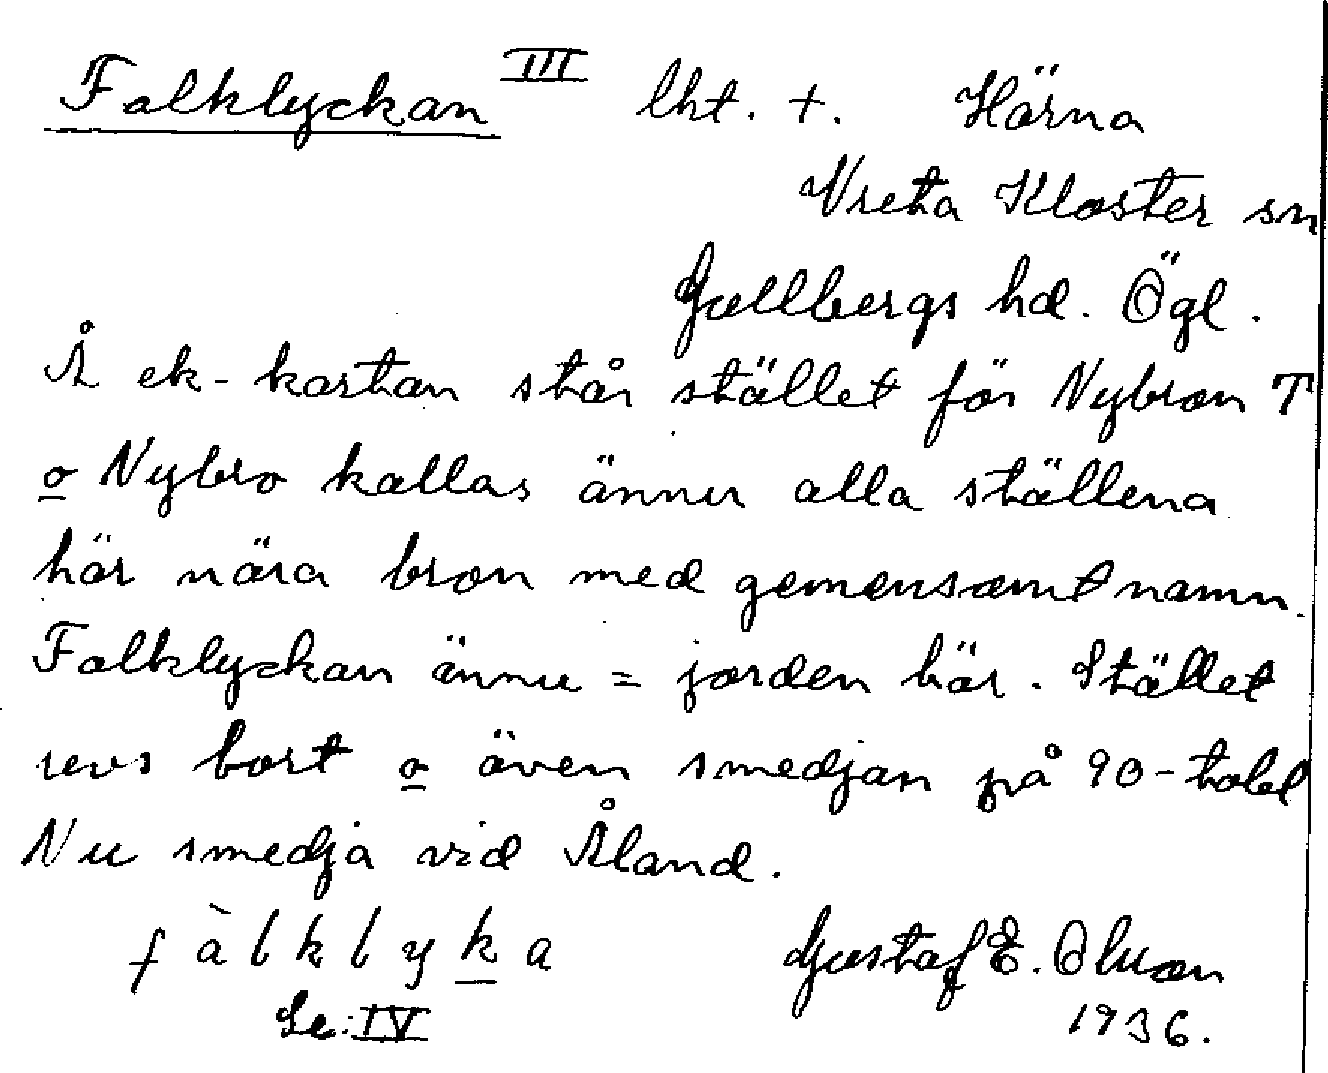 Falklyckan III lht. +. Härna
Vreta Kloster sn
Gullbergs hd. Ögl.
Å ek-kartan står stället för Nybron T
o Nybro kallas ännu alla ställena
här nära bron med gemensamt namn.
Falklyckan ännu = jorden här. Stället
revs bort o även smedjan på 90-talet
Nu smedja vid Åland.
fàlklyka Gustaf E. Olson
Se: IV 1936.